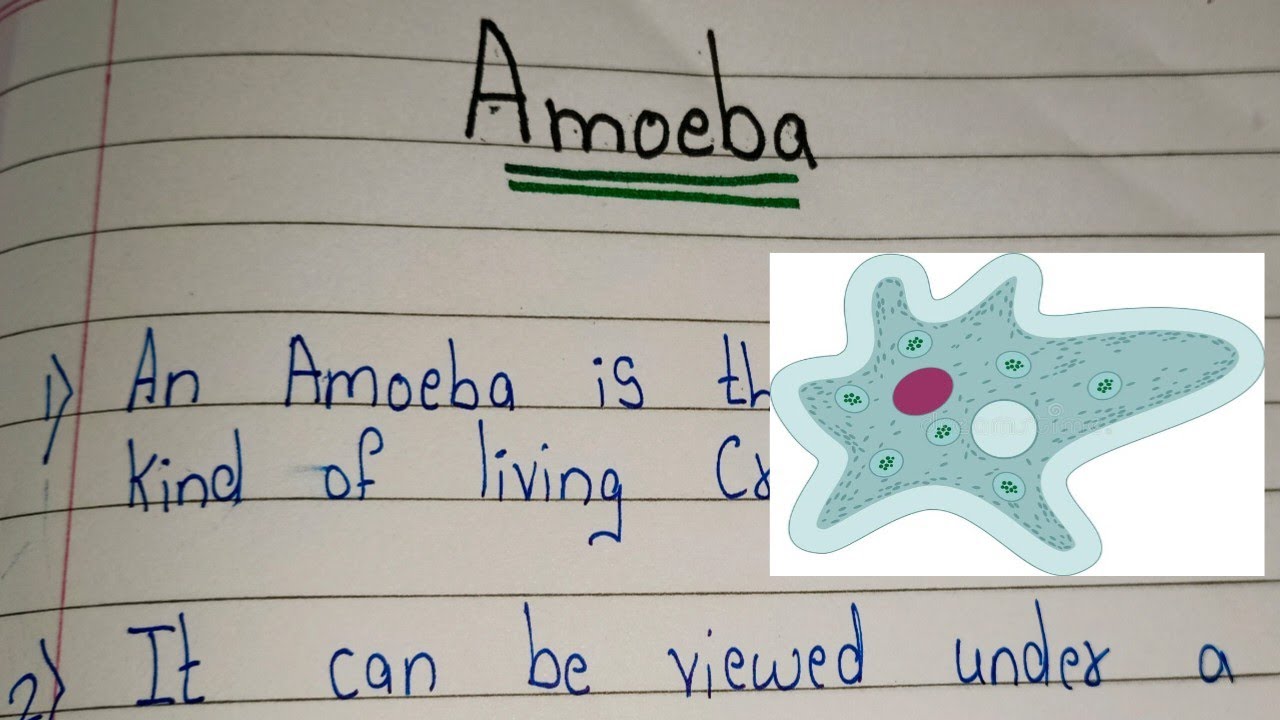 Amoeba
1) An Amoeba is
kind of living
2) It can be viewed under a